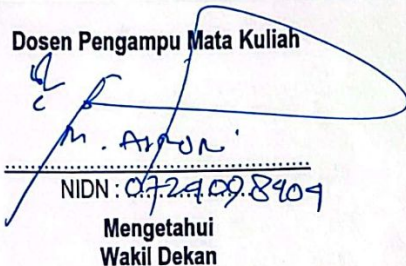 Dosen Pengampu Mata Kuliah
NIDN : 0724098404
Mengetahui
Wakil Dekan